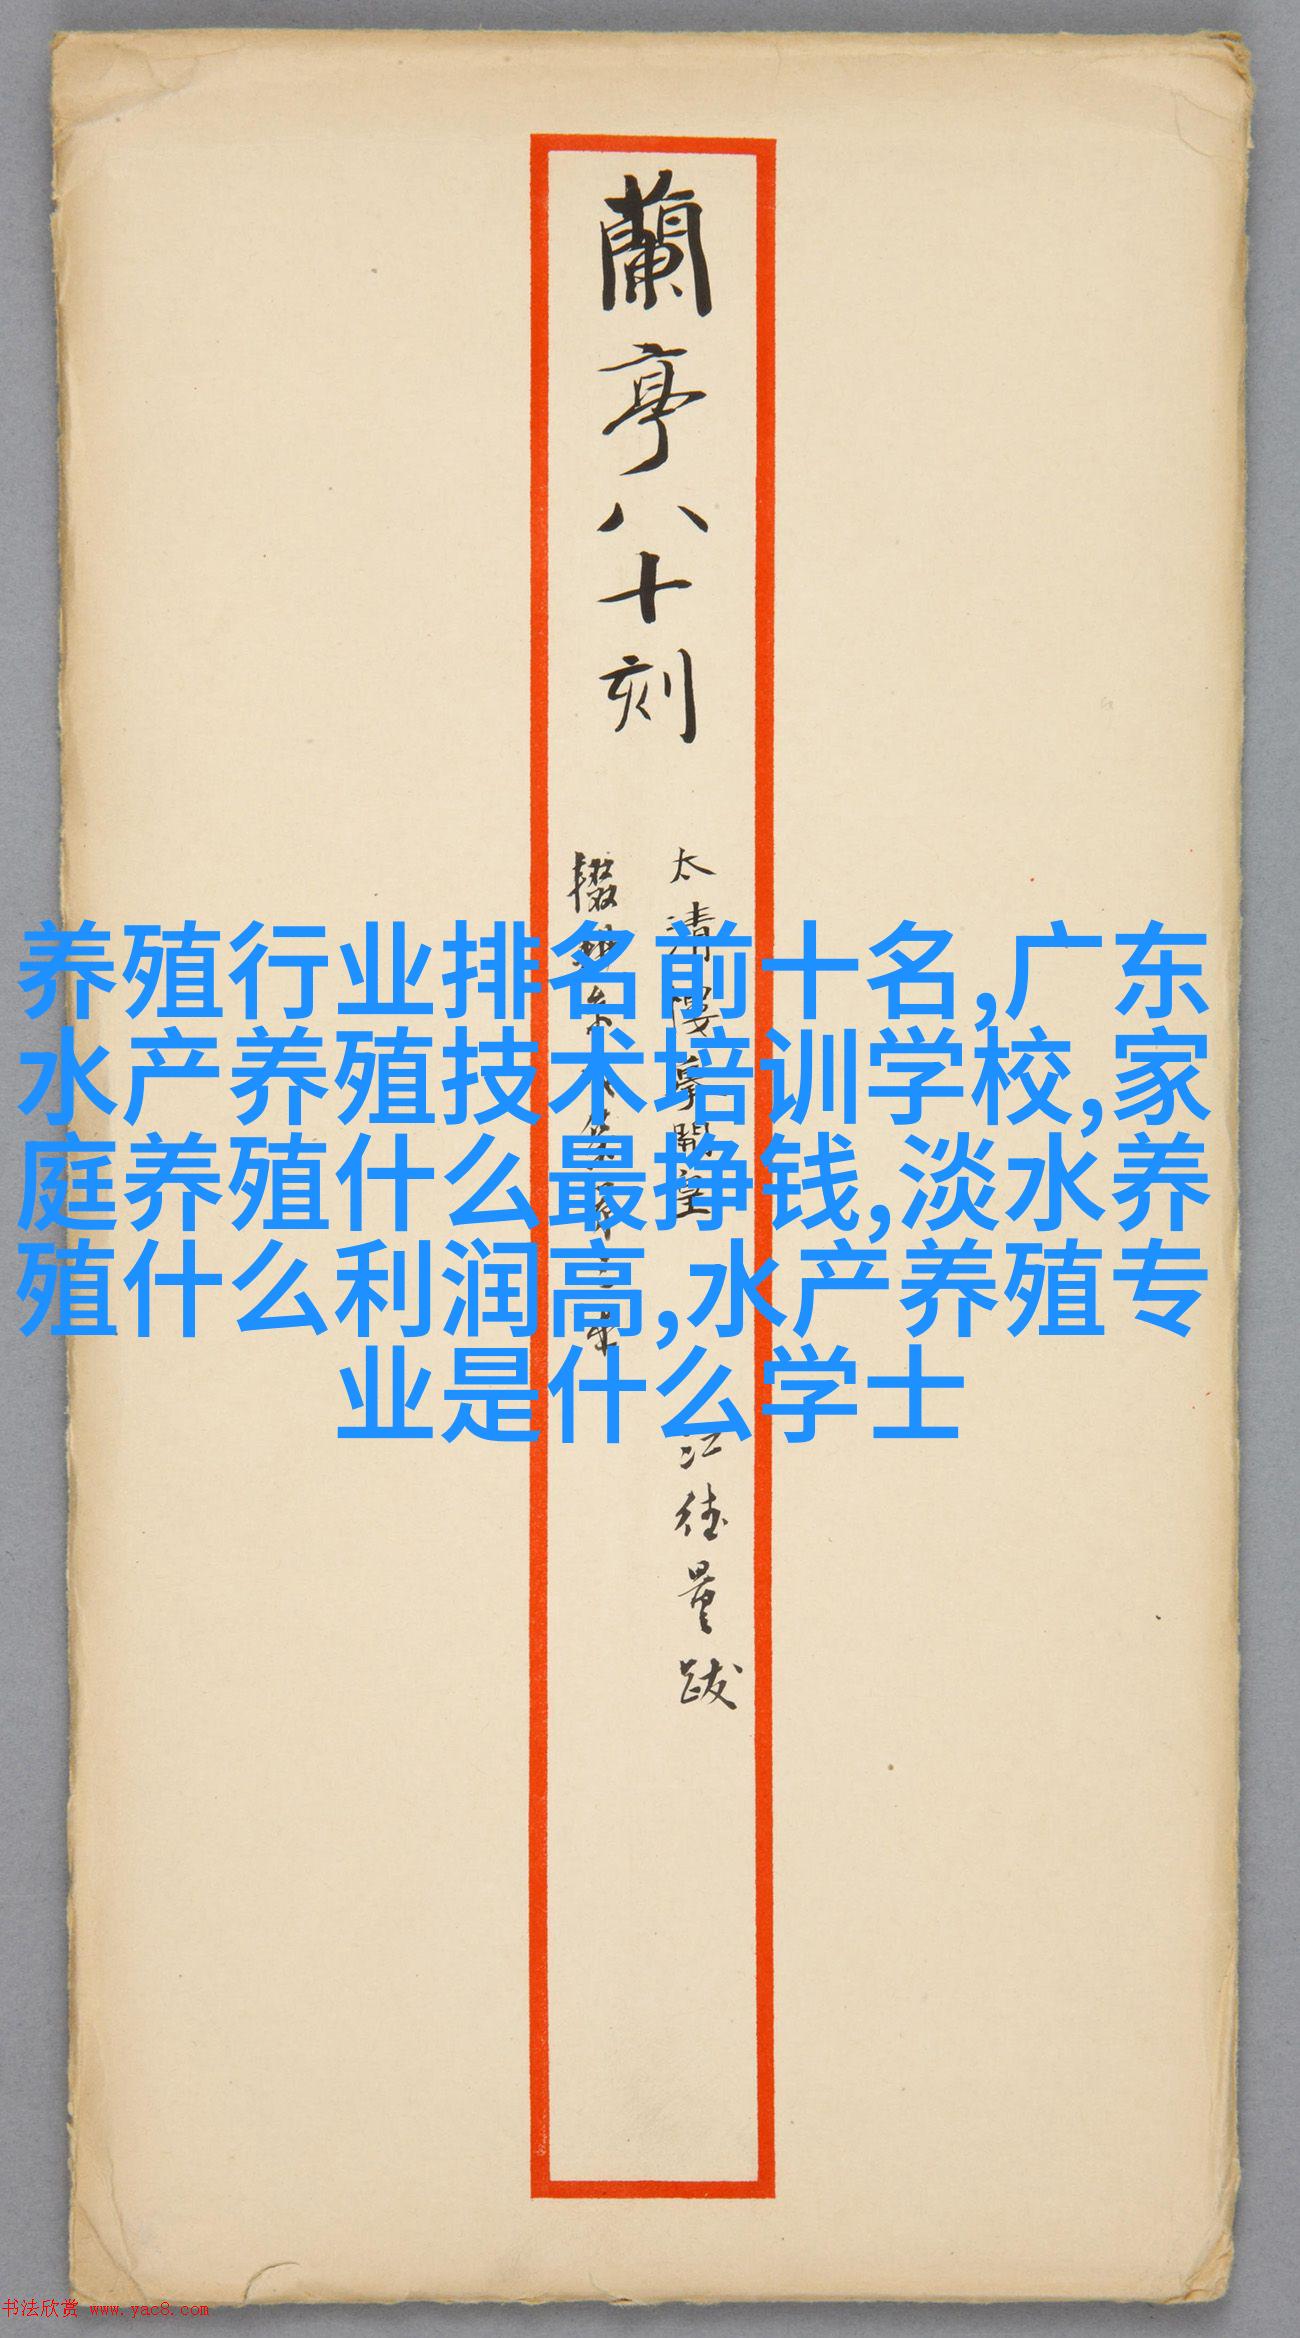 蘭亭八十刻
太清樓摹開皇
江德量跋
养殖行业排名前十名,广东
水产养殖技术培训学校,家
庭养殖什么最挣钱,淡水养
殖什么利润高,水产养殖专
业是什么学士
书法欣赏 www.yac8.com